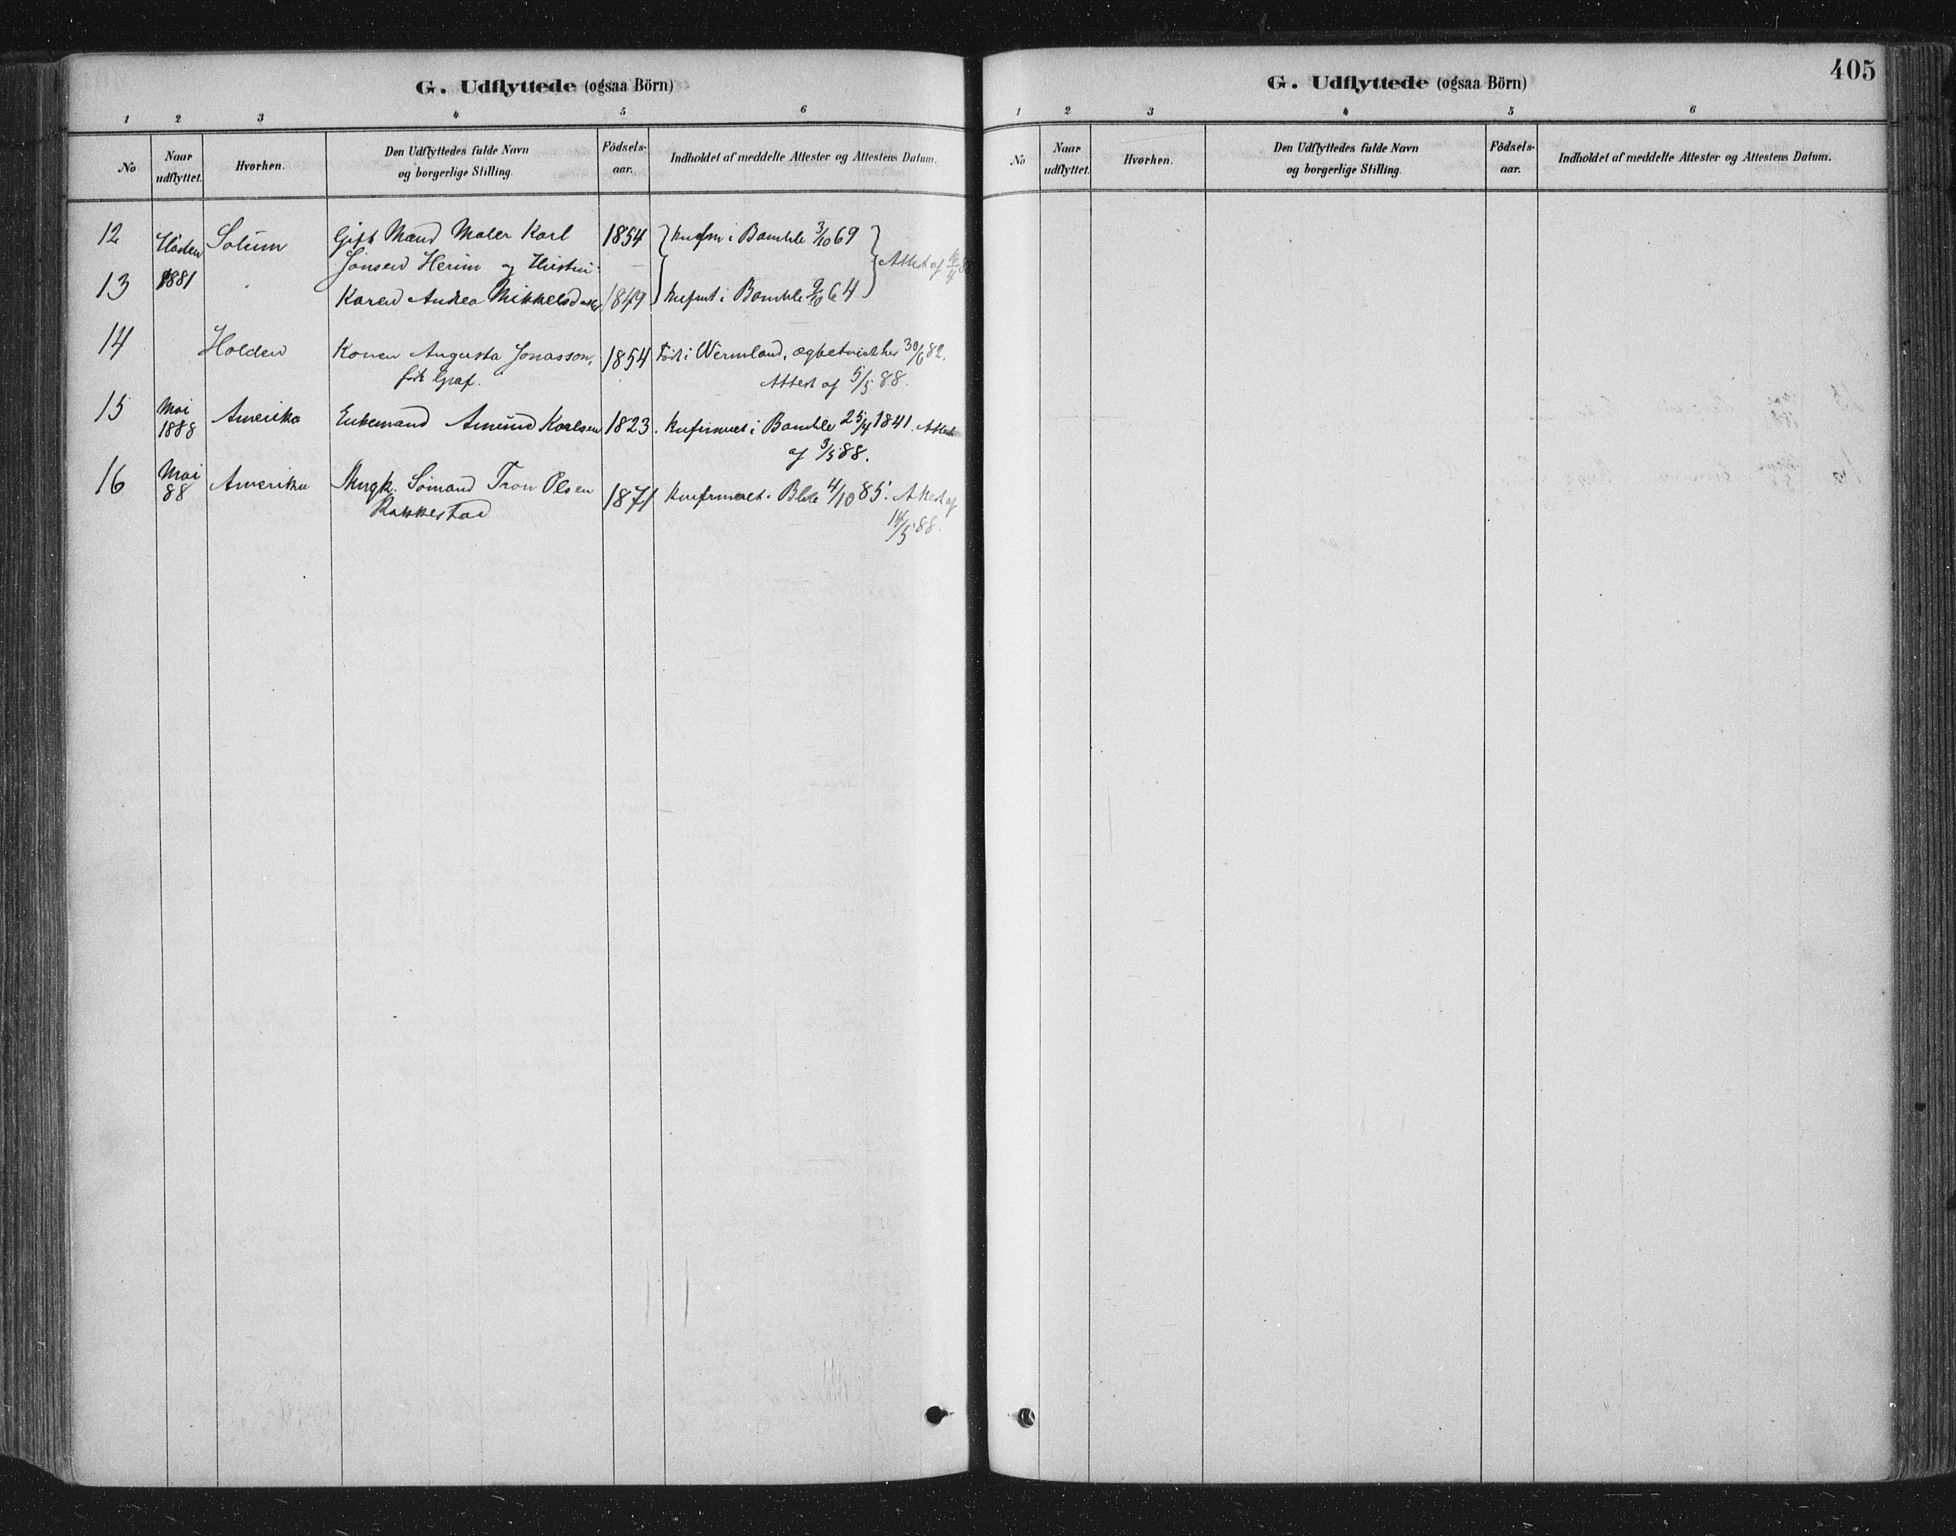 G. Udflyttede (ogsaa Börn)
1 2 3 4 5 6
No Naar udflyttet. Hvorhen. Den Udflyttedes fulde Navn og borgerlige Stilling. Födsels-aar. Indholdet af meddelte Attester og Attestens Datum.
12 Hösten Solum Gift Mand Maler Karl 1854 konfm i Bamble 3/10 69
Jonsen Herum og Hustru Attest af 88
13 1881 Karen Andrea Mikkelsdatter 1849 Konfmt i Bamble 9/10 64
14 Holden Konen Augusta Jonasson, 1854 Född i Wermland, ægteviet her 30/6 82.
född Graf. Attest af 5/5 88.
15 Mai 1888 Amerika Enkemand Amund Karlsen 1823. Konfirmeret i Bamble 25/4 1841. Attest
af 3/5 88.
16 Mai 88 Amerika Ungk. Sömand Tron Olsen 1871 Konfirmeret i Bble 4/10 85. Attest af
Rakkestad 14/5 88.
G. Udflyttede (ogsaa Börn)
405
1 2 3 4 5 6
No Naar udflyttet. Hvorhen. Den Udflyttedes fulde Navn og borgerlige Stilling. Födsels-aar. Indholdet af meddelte Attester og Attestens Datum.